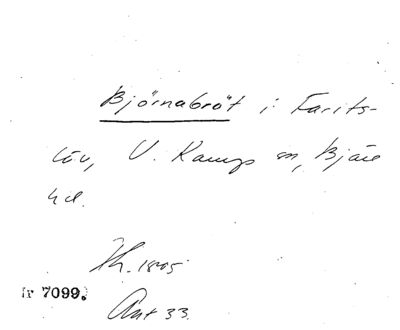 Björnabröt i Farits-
löv, V. Karups sn, Bjäre
hd.
Ak. 1805
Ant 33.
Nr 7099.